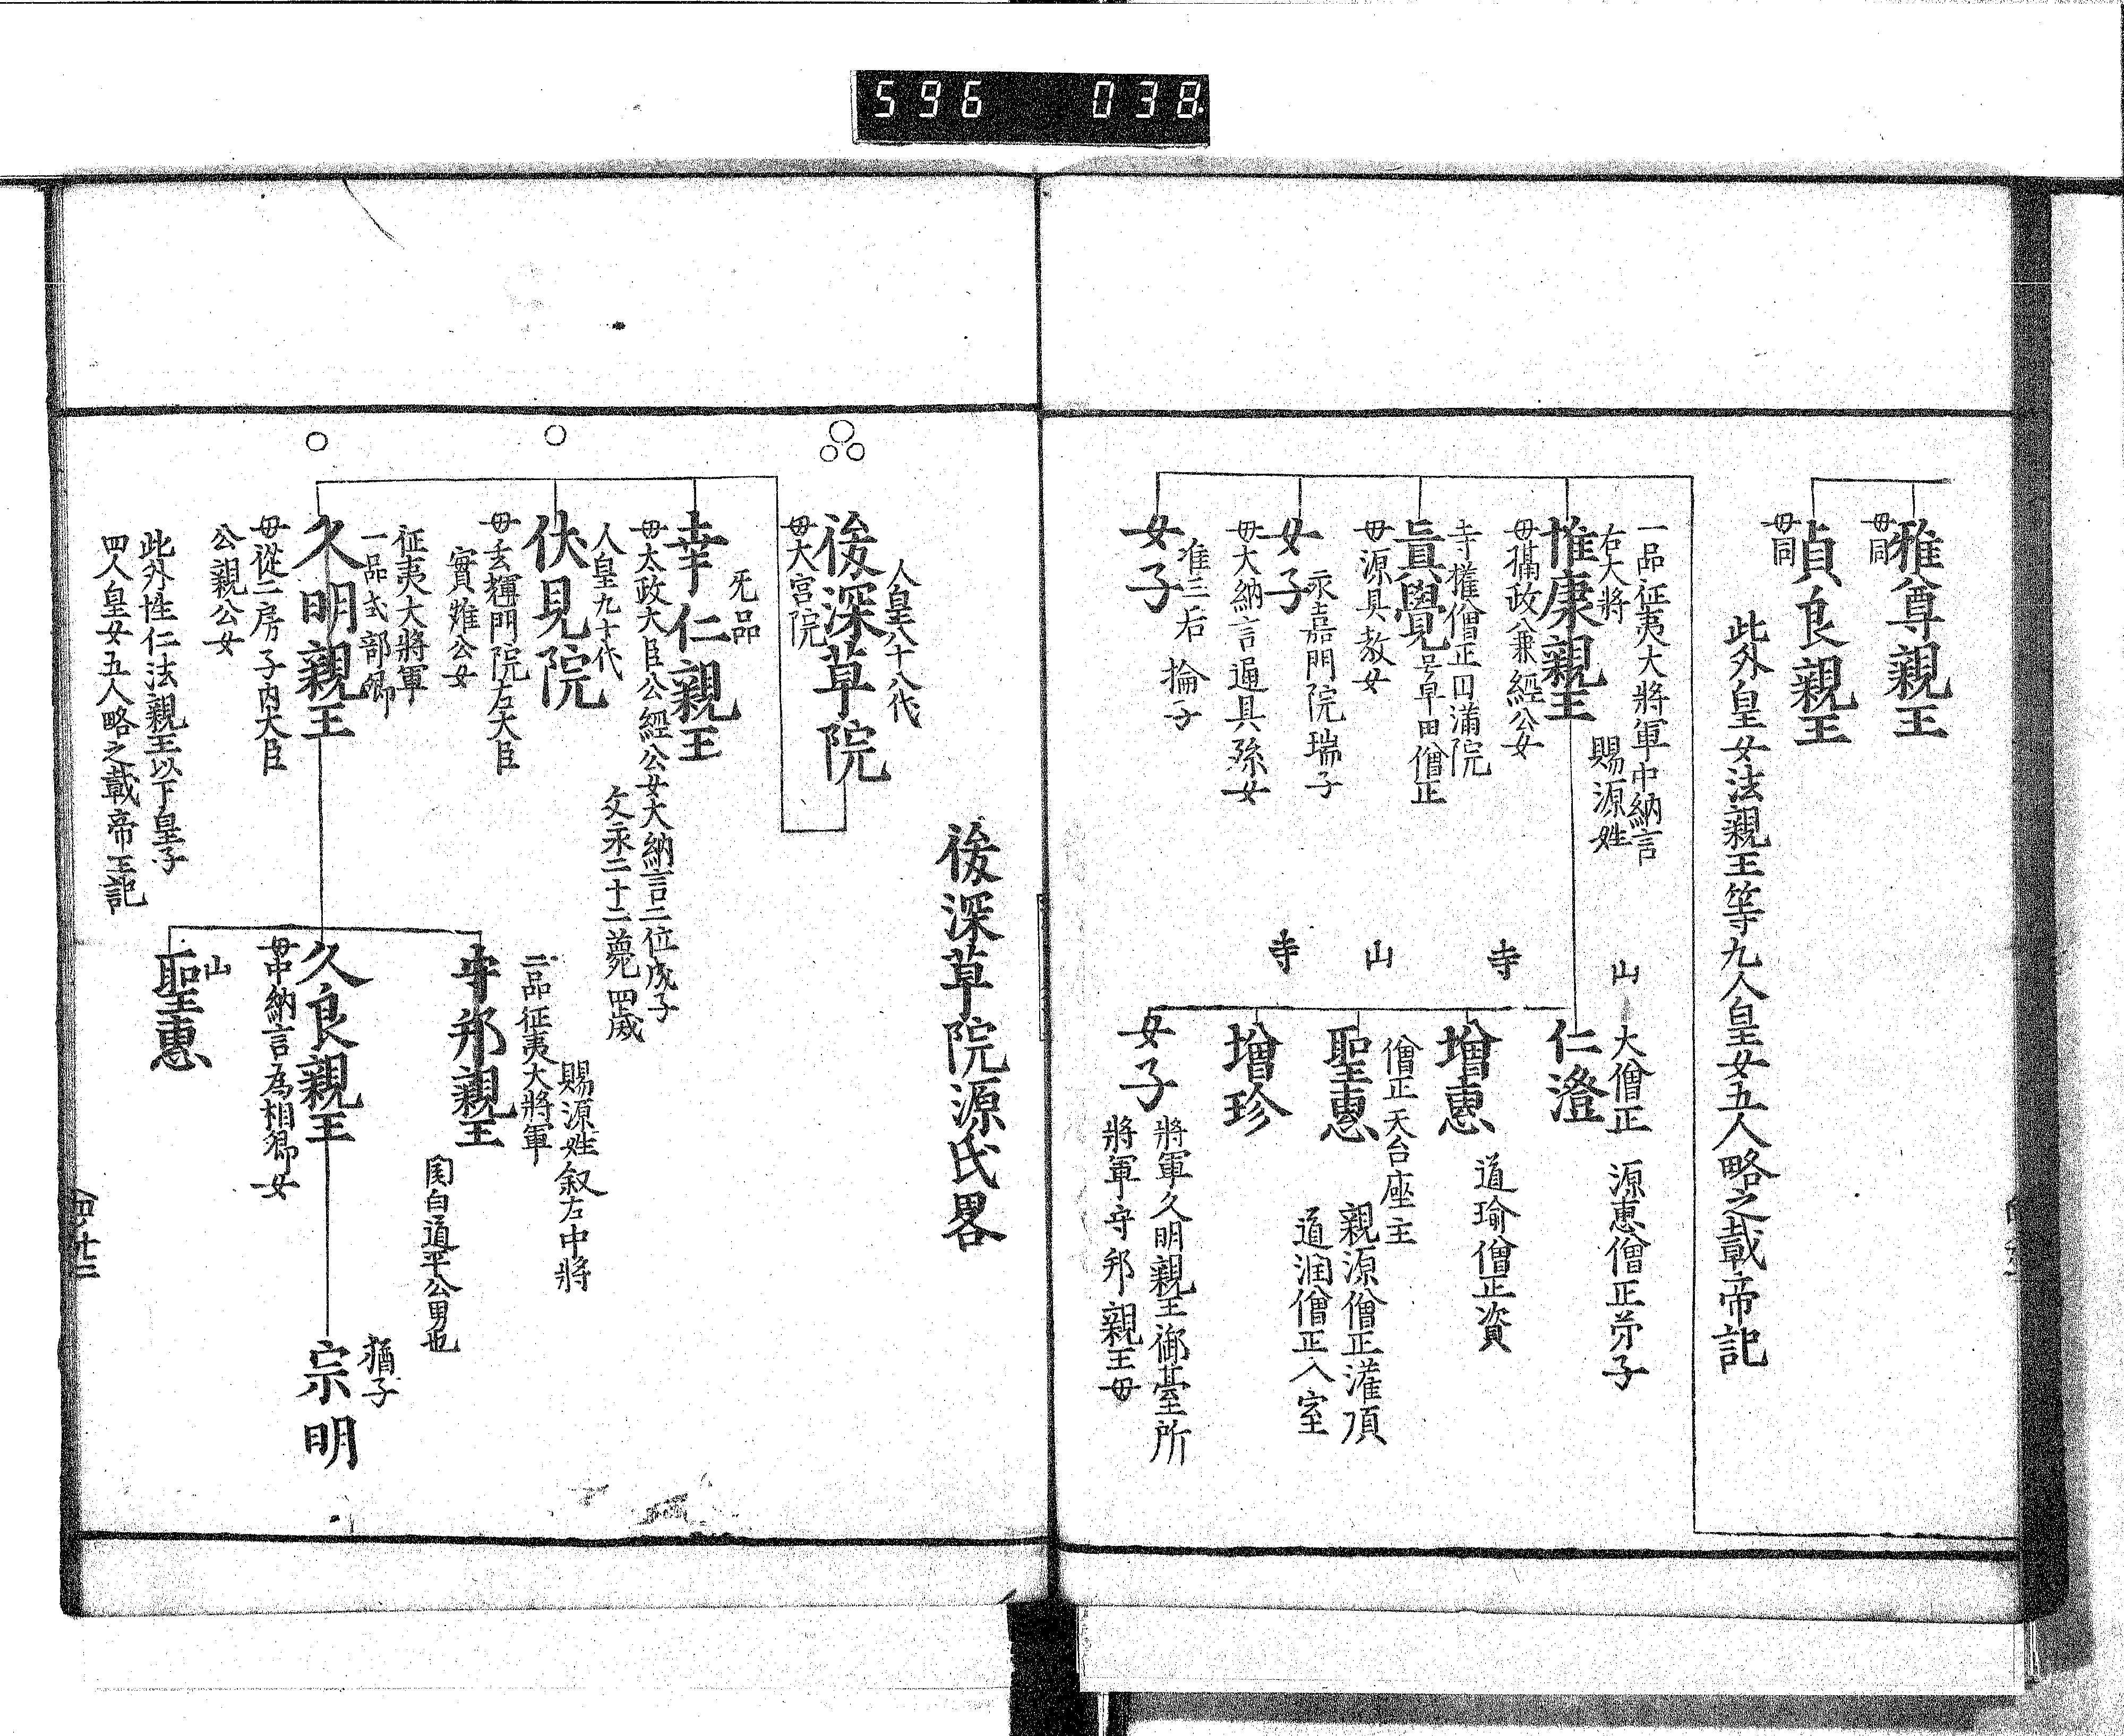 596 038
雅尊親王
母同
貞良親王
母同
此外皇女法親王等九人皇女五人略之載帝記
一品征夷大將軍中納言
右大將 賜源姓
惟康親王
母攝政兼經公女
山 大僧正 源惠僧正弟子
仁澄
寺 道瑜僧正資
增惠
山 僧正天台座主
聖惠
親源僧正灌頂
道潤僧正入室
寺
增珍
女子
將軍久明親王御臺所
將軍守邦親王母
寺權僧正円滿院
眞覺
号早田僧正
母源具教女
女子
永嘉門院瑞子
母大納言通具孫女
女子
准三后 掄子
後深草院源氏畧
人皇八十八代
後深草院
母大宮院
无品
幸仁親王
母太政大臣公經公女大納言二位成子
文永二十二薨四歲
人皇九十代
伏見院
母玄輝門院左大臣
實雄公女
征夷大將軍
一品式部卿
久明親王
母從二房子內大臣
公親公女
賜源姓叙右中將
二品征夷大將軍
守邦親王
久良親王
母中納言為相卿女
関白道平公男也
猶子
宗明
山
聖惠
此外性仁法親王以下皇子
四人皇女五人略之載帝王記